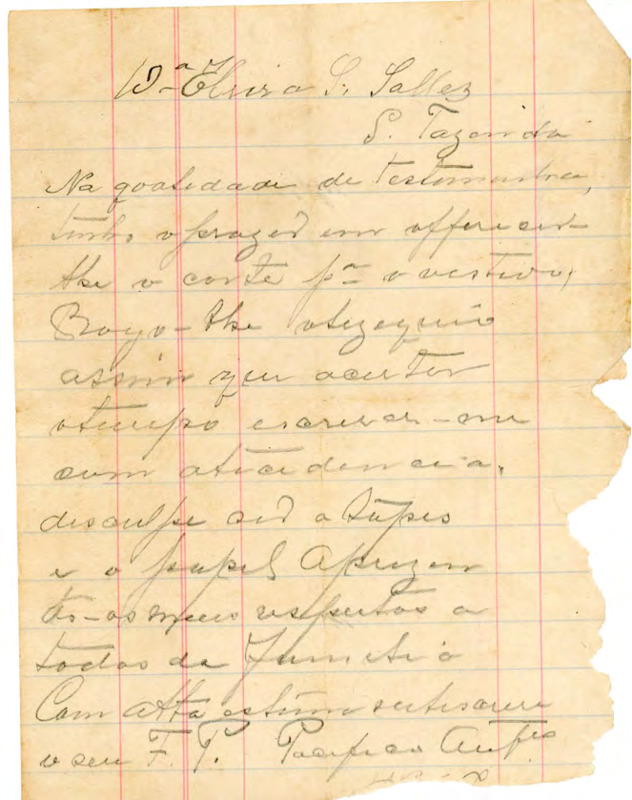 D.ª Elvira S. Salles
S. Fazenda
Na qoalidade de testimunha,
tenho o prazer em offerecer-
lhe o corte p.ª o vestido,
Rogo-lhe obzequio
assim que acertar
o tempo escrever-me
com atecedencia.
desculpe ser a lapes
e o papel Aprezen
to-os meus respeitos a
todos da
Com alta estima
o seu F. P. Pacifico